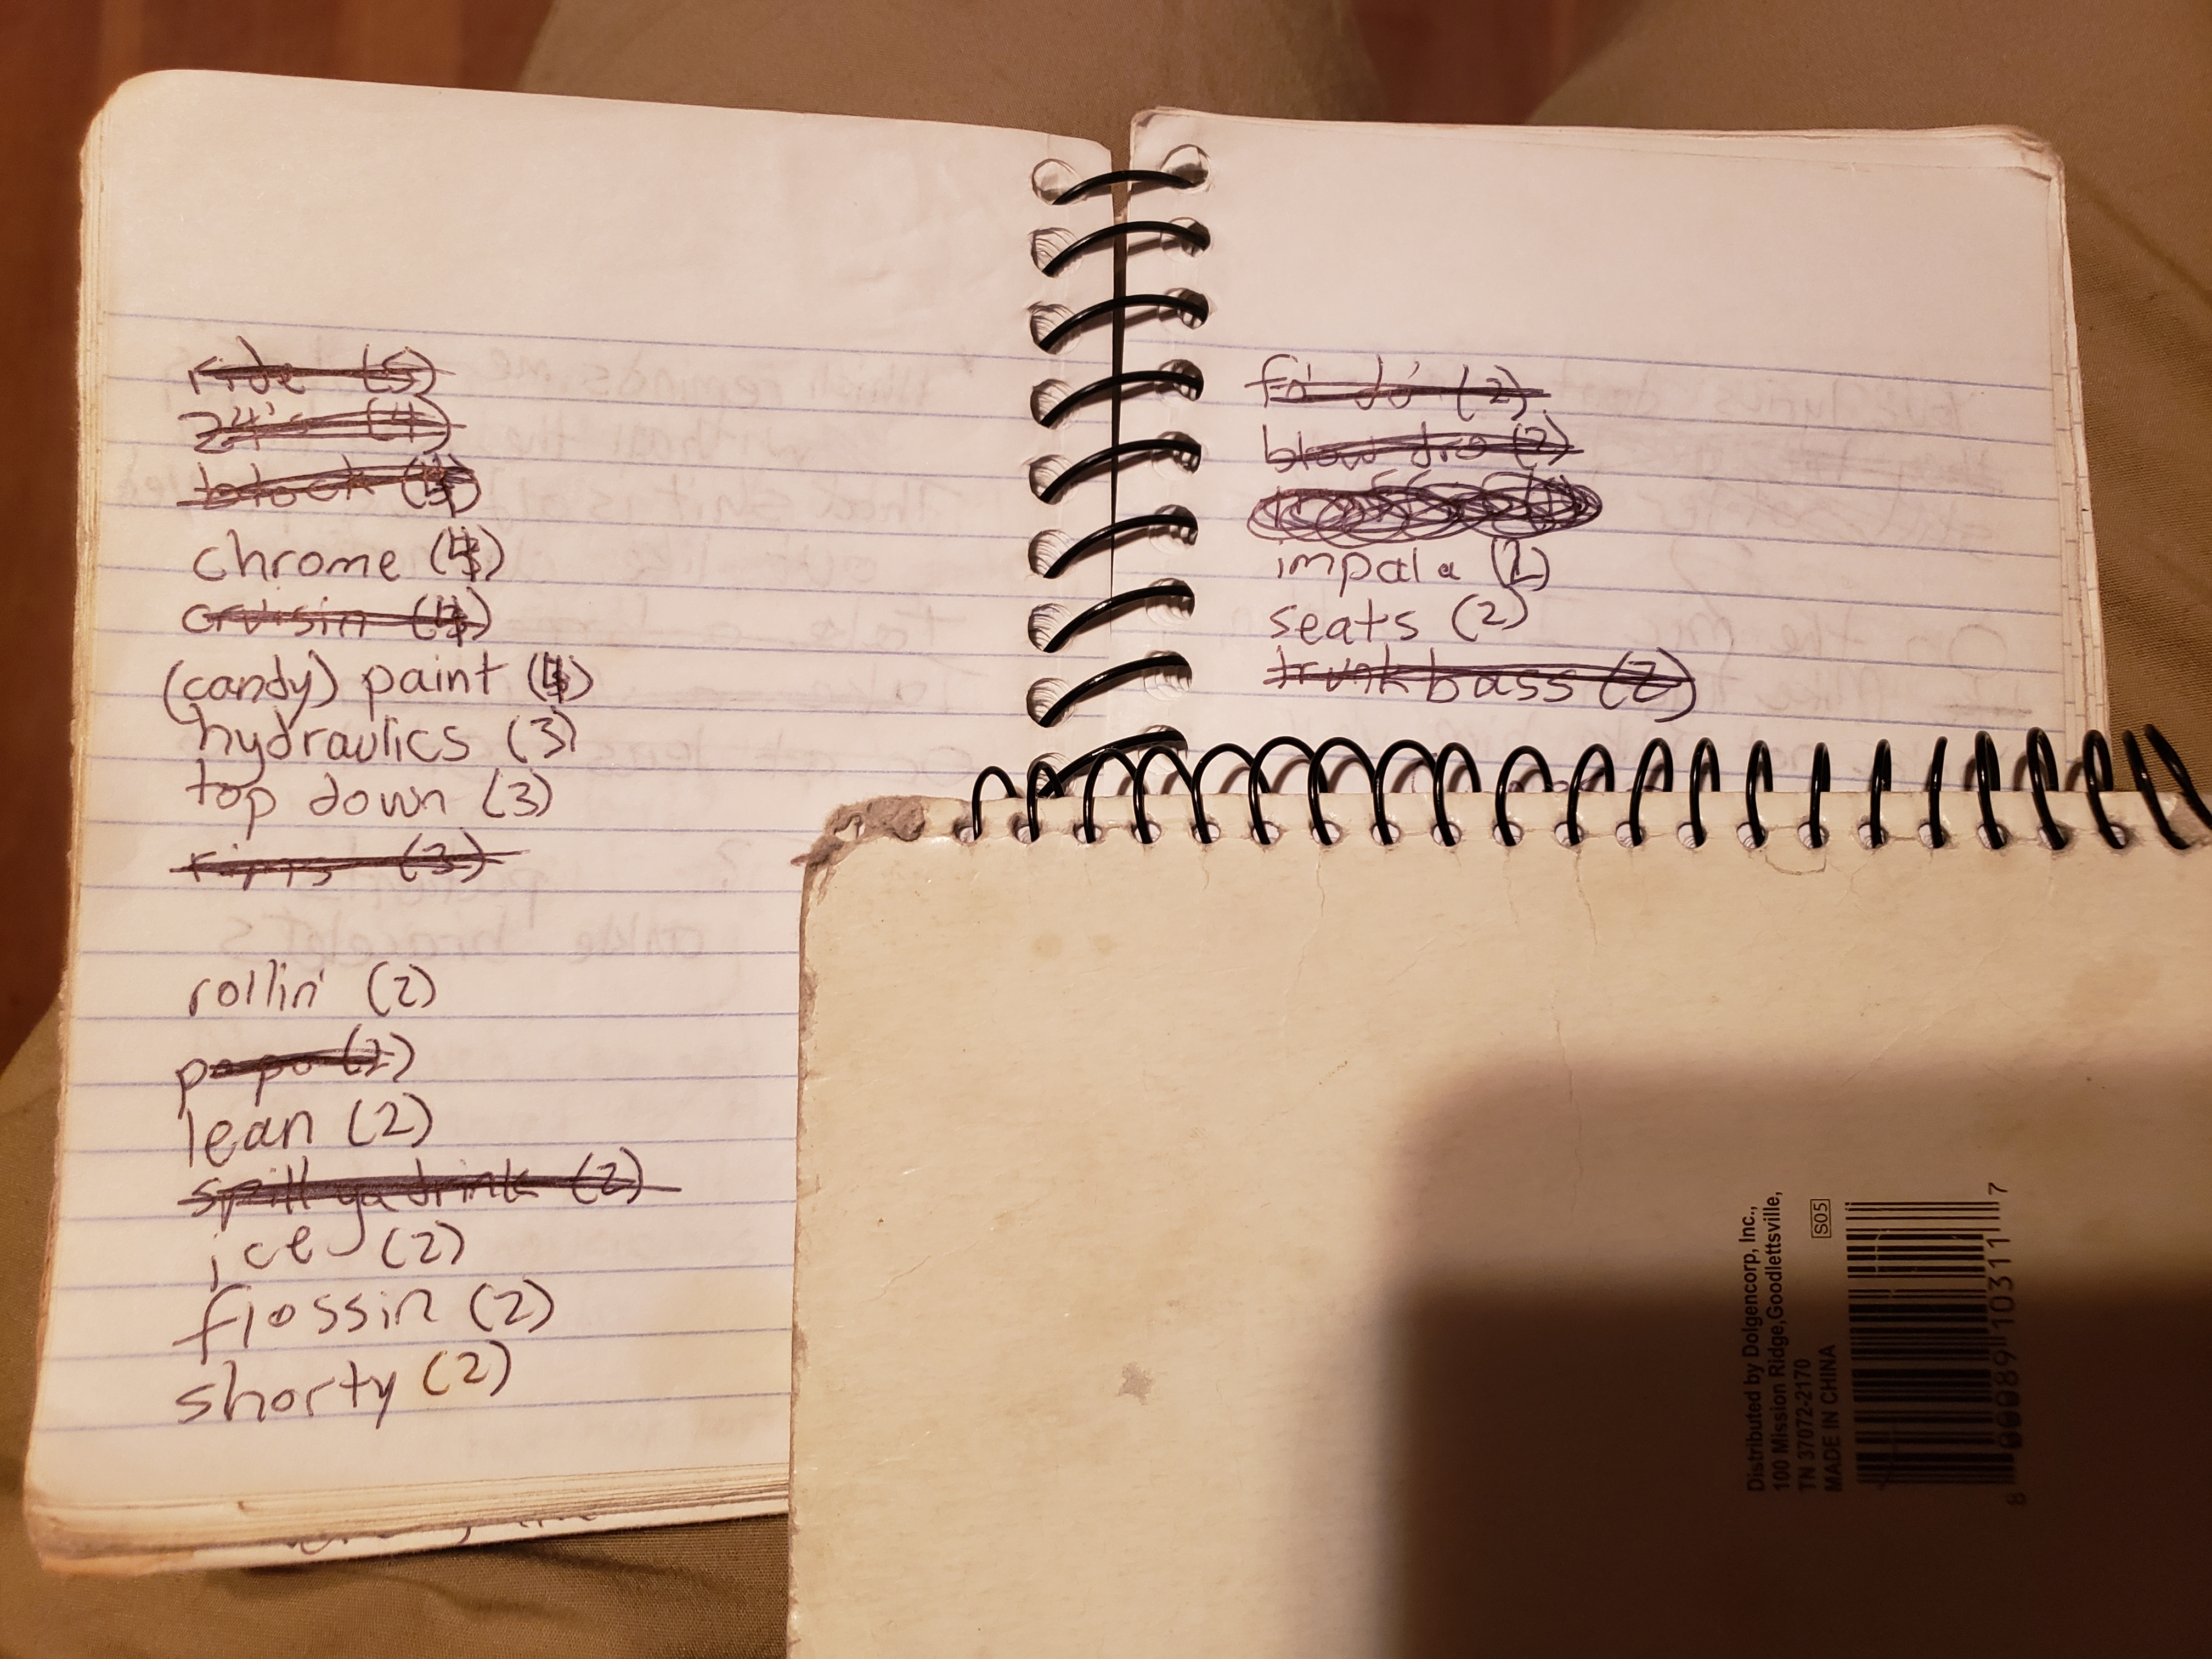 ride (5)
24's (4)
block (4)
chrome (4)
cruisin (4)
(candy) paint (4)
hydraulics (3)
top down (3)
rims (3)
rollin' (2)
popo (2)
lean (2)
spill ya drink (2)
ice (2)
flossin (2)
shorty (2)
fo' do' (2)
blow dro (2)
impala (2)
seats (2)
trunk bass (2)
Distributed by Dolgencorp, Inc.,
100 Mission Ridge, Goodlettsville,
TN 37072-2170
MADE IN CHINA
S05
8 00089 10311 7